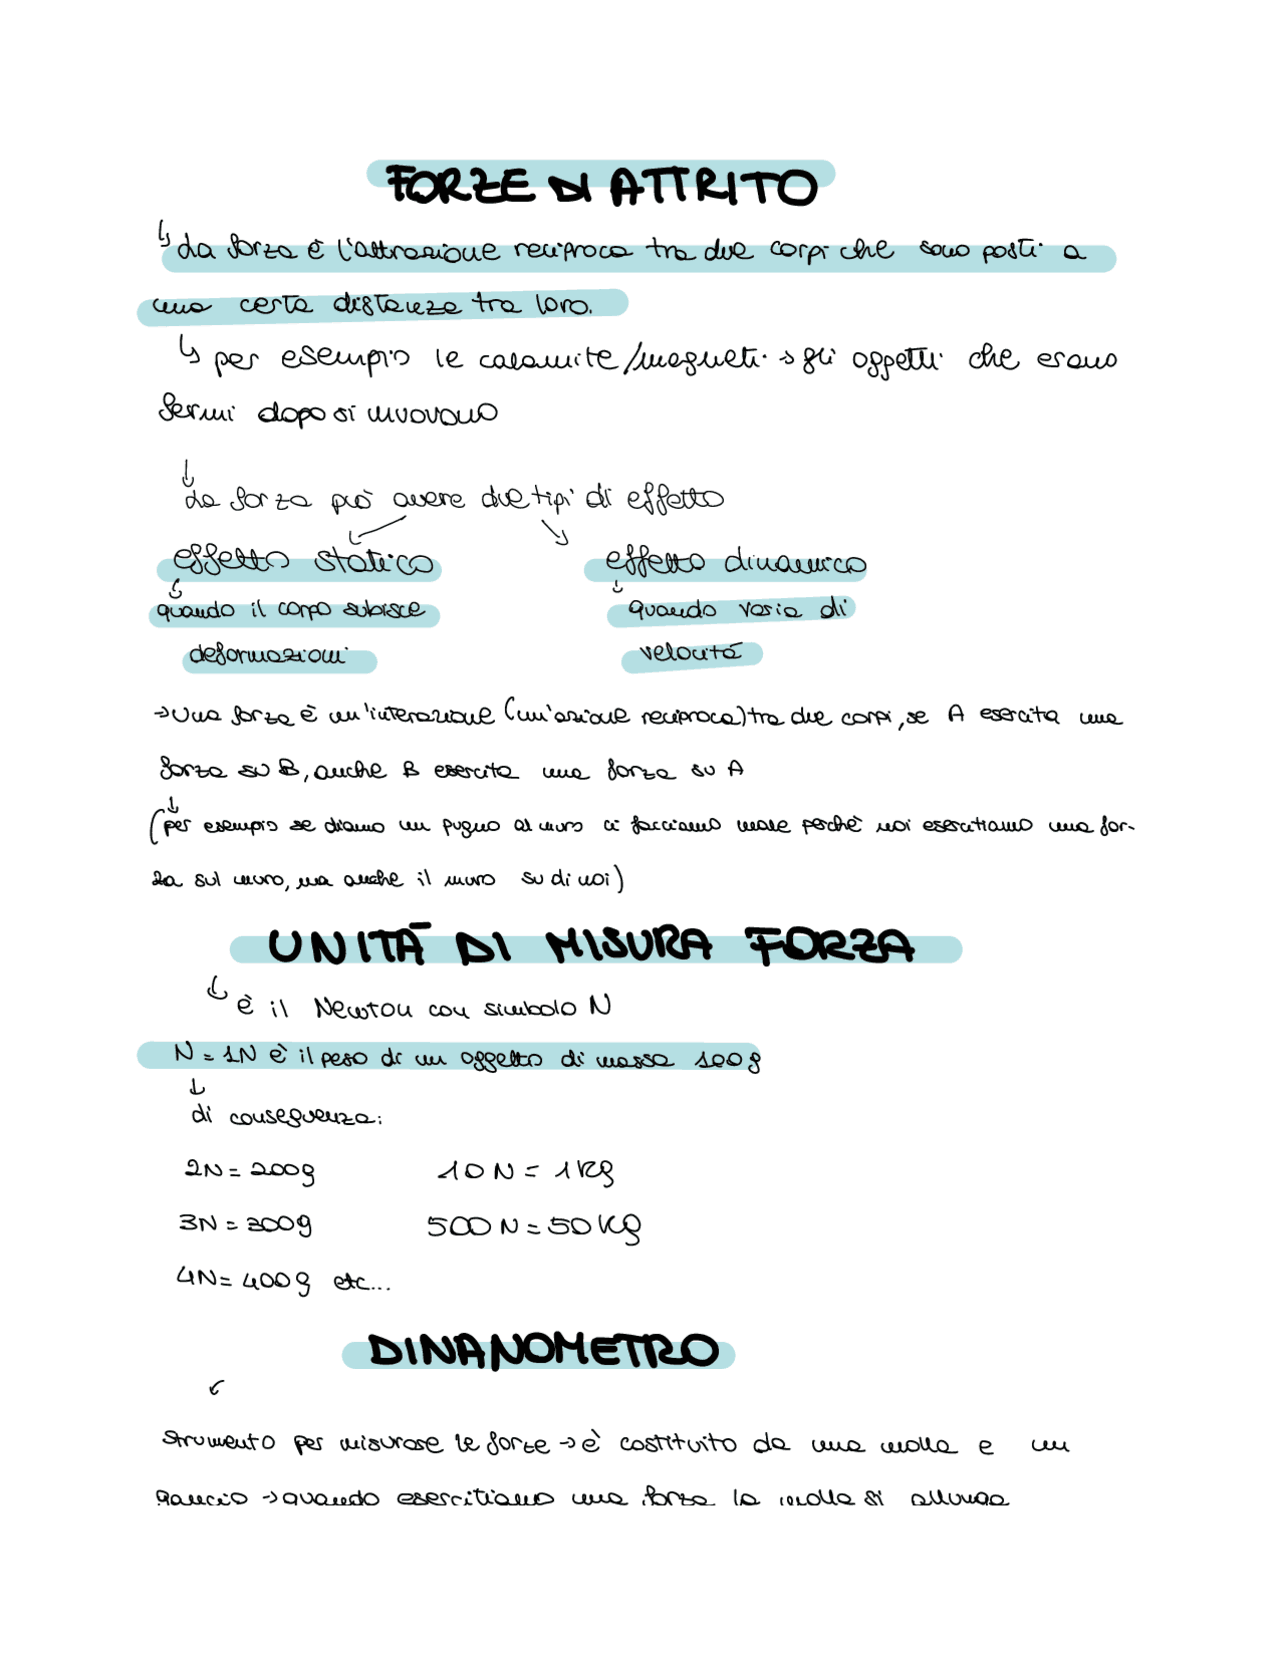 FORZE DI ATTRITO
↳ La forza è l'attrazione reciproca tra due corpi che sono posti a
una certa distanza tra loro.
↳ per esempio le calamite/magneti → gli oggetti che erano
fermi dopo si muovono
↓
La forza può avere due tipi di effetto
effetto statico effetto dinamico
quando il corpo subisce quando varia di
deformazioni velocità
→ Una forza è un'interazione (un'azione reciproca) tra due corpi, se A esercita una
forza su B, anche B esercita una forza su A
(per esempio se diamo un pugno al muro ci facciamo male perché noi esercitiamo una for-
za sul muro, ma anche il muro su di noi)
UNITÀ DI MISURA FORZA
↳ è il Newton con simbolo N
N = 1N è il peso di un oggetto di massa 100g
↓
di conseguenza:
2N = 200g 10N = 1Kg
3N = 300g 500N = 50Kg
4N = 400g etc...
DINANOMETRO
strumento per misurare le forze → è costituito da una molla e un
gancio → quando esercitiamo una forza la molla si allunga